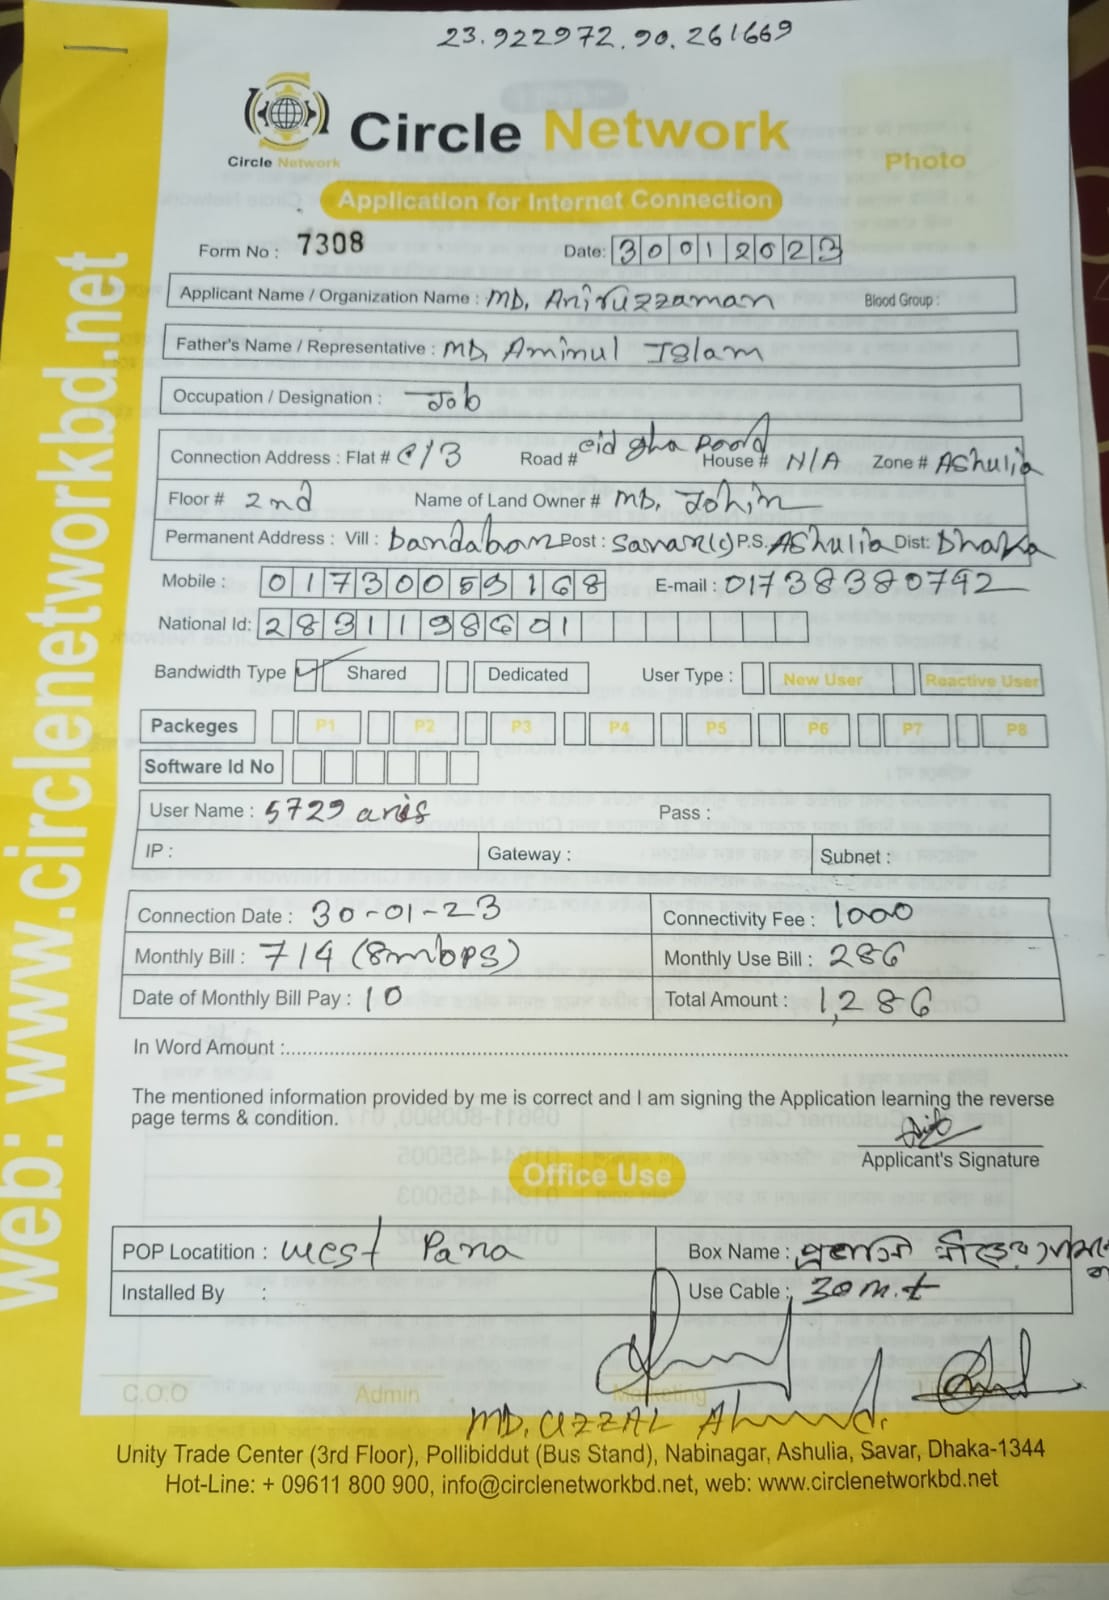 23.922972.90.261669
Circle Network
Circle Network
Photo
Application for Internet Connection
Form No : 7308 Date: 30012023
Applicant Name / Organization Name : MD, Aniruzzaman Blood Group :
Father's Name / Representative : MD, Aminul Islam
Occupation / Designation : Job
Connection Address : Flat # C/3 Road # eid gha Road House # N/A Zone # Ashulia
Floor # 2nd Name of Land Owner # MD. Johin
Permanent Address : Vill : Post : P.S. Ashulia Dist: Dhaka
Mobile : 01730059168 E-mail : 01738380792
National Id: 2831198601
Bandwidth Type Shared Dedicated User Type : New User Reactive User
Packeges P1 P2 P3 P4 P5 P6 P7 P8
Software Id No
User Name : 5729 anis Pass :
IP : Gateway : Subnet :
Connection Date : 30-01-23 Connectivity Fee : 1000
Monthly Bill : 714 (8mbps) Monthly Use Bill : 286
Date of Monthly Bill Pay : 10 Total Amount : 1,286
In Word Amount :
The mentioned information provided by me is correct and I am signing the Application learning the reverse
page terms & condition.
Applicant's Signature
Office Use
POP Locatition : West Para Box Name :
Installed By : Use Cable : 30 m.t
C.O.O Admin Marketing
MD. UZZAL Ahmed.
Unity Trade Center (3rd Floor), Pollibiddut (Bus Stand), Nabinagar, Ashulia, Savar, Dhaka-1344
Hot-Line: + 09611 800 900, info@circlenetworkbd.net, web: www.circlenetworkbd.net
web: www.circlenetworkbd.net